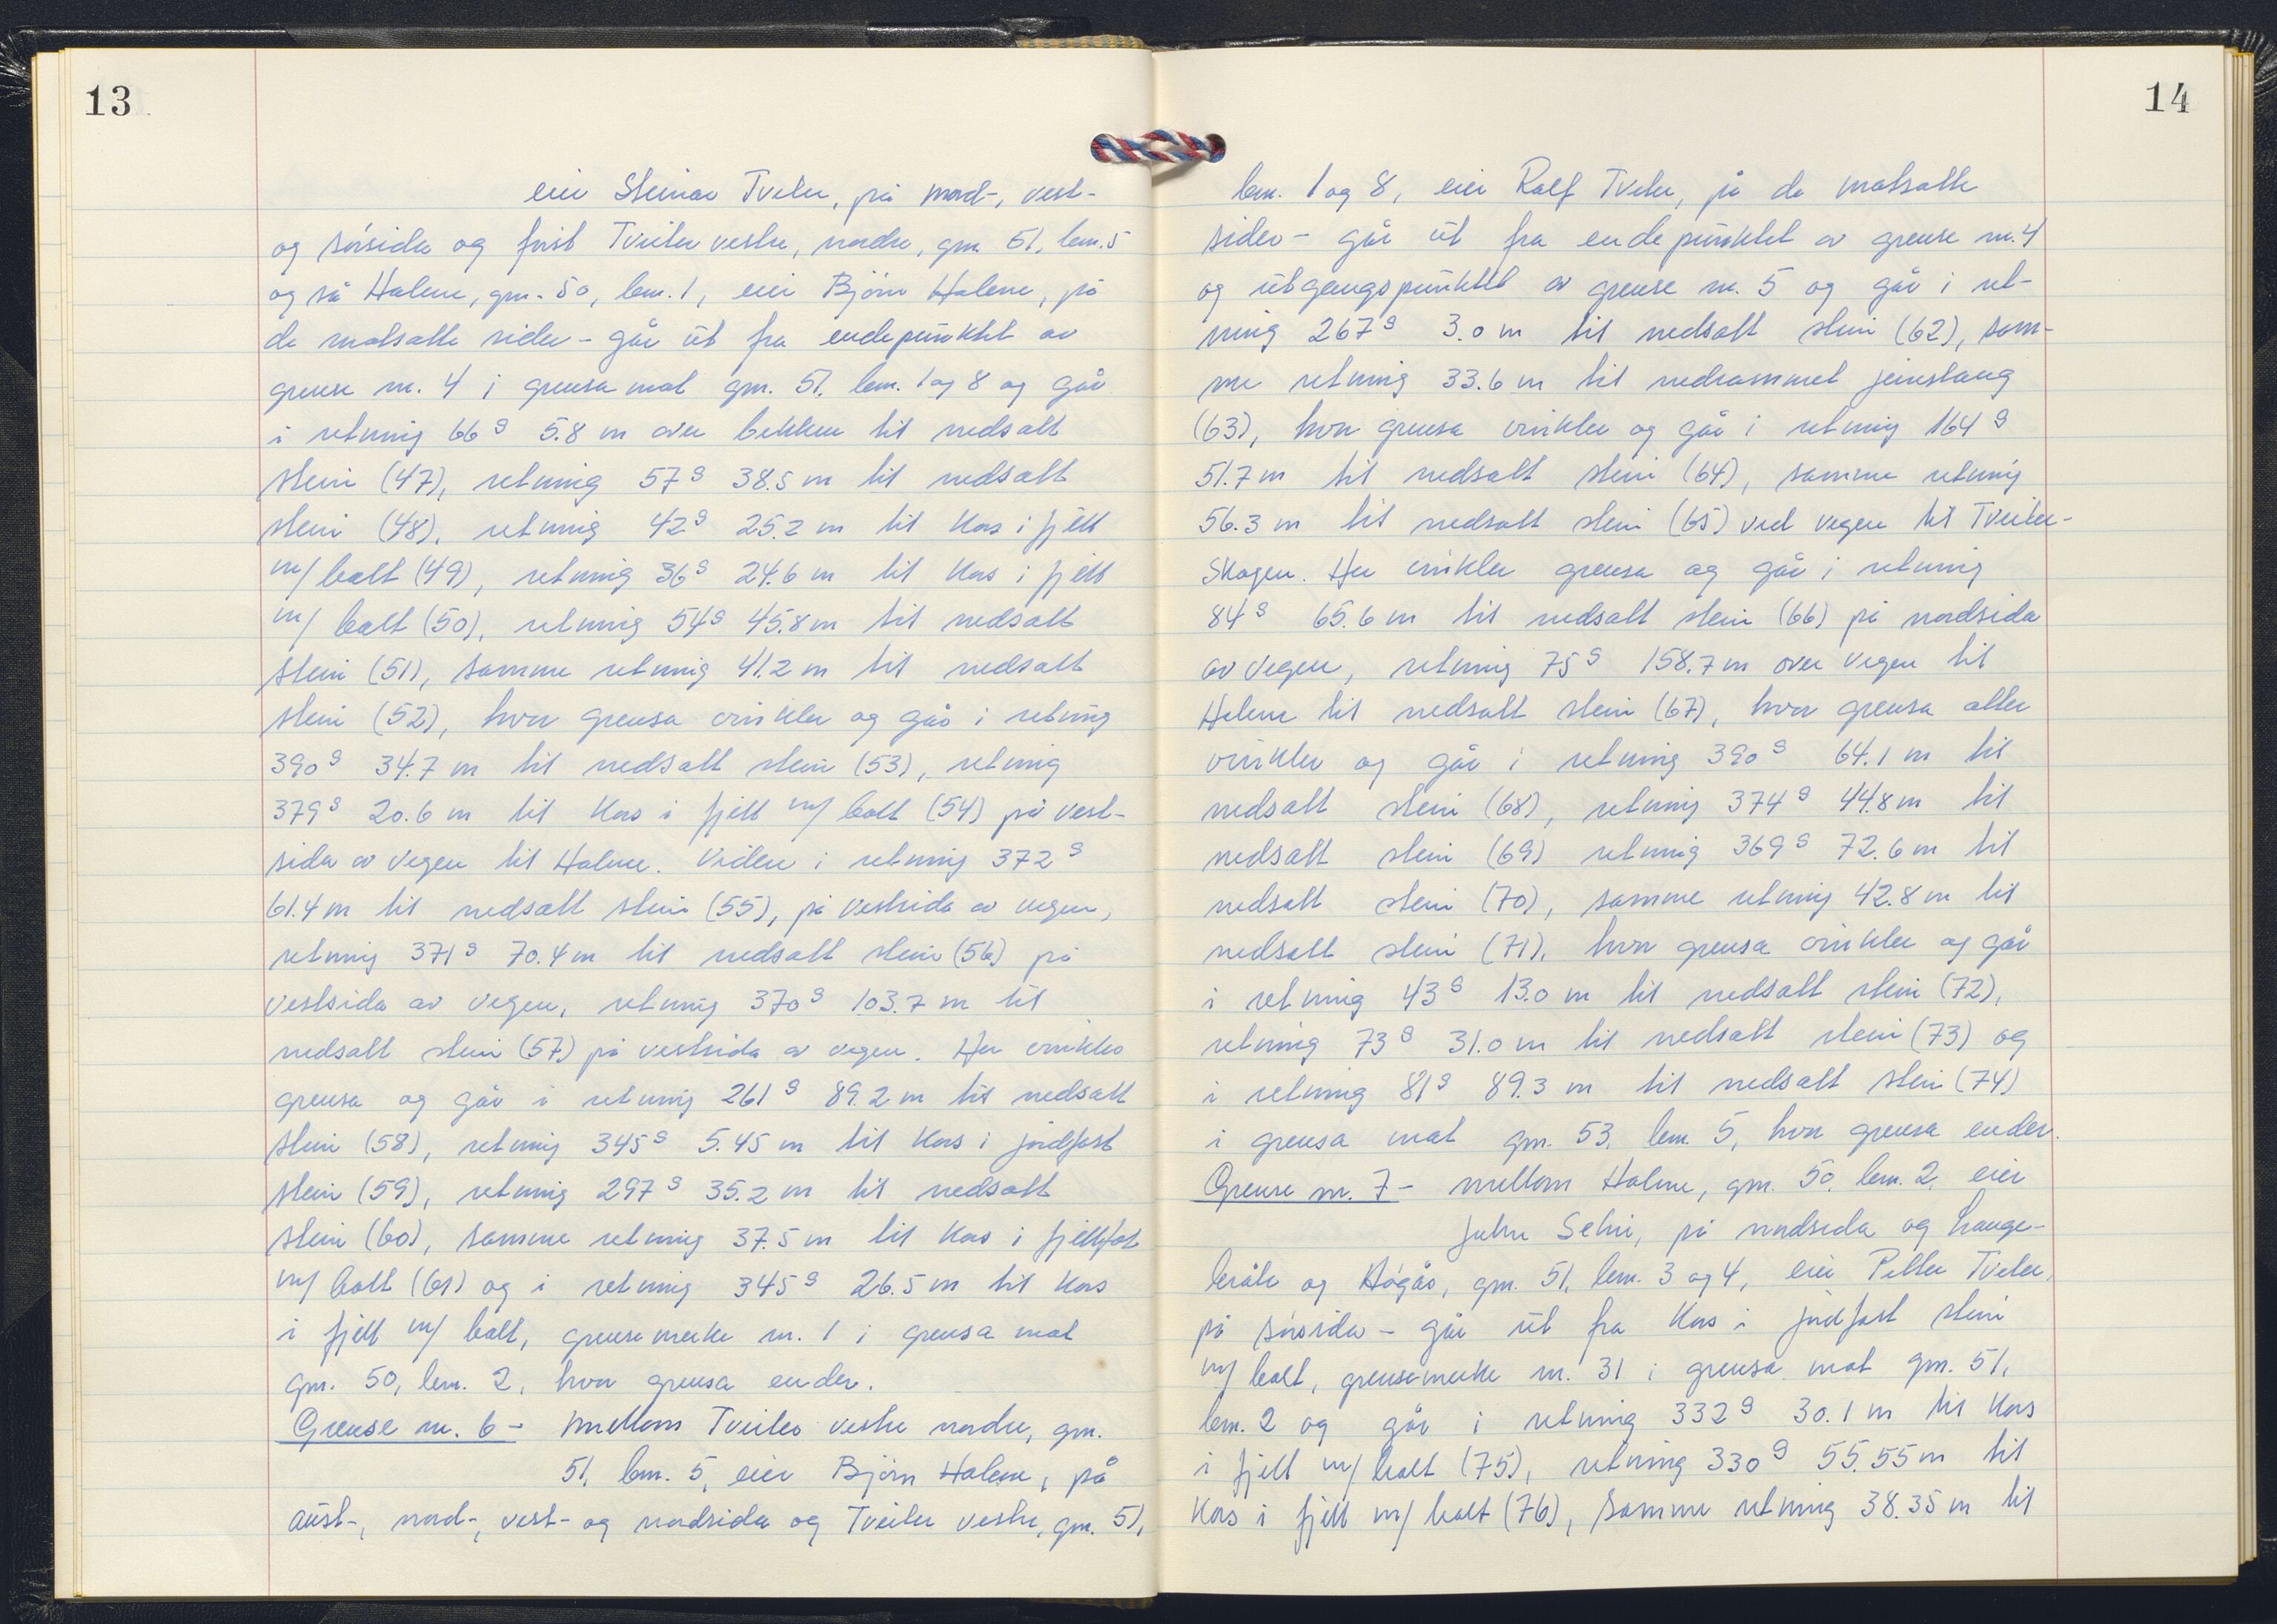 13
eier Steinar Tveter, på nord-, vest-
og sørsida og først Tveiter vestre, nordre, gnr. 51, bnr. 5
og så Halene, gnr. 50, bnr. 1, eier Björn Halene, på
de motsatte sider - går ut fra endepunktet av
grense nr. 4 i grensa mot gnr. 51, bnr. 1 og 8 og går
i retning 66 g 5.8 m over bekken til nedsatt
stein (47), retning 57 g 38.5 m til nedsatt
stein (48), retning 42 g 25.2 m til kors i fjell
m/ bolt (49), retning 36 g 24.6 m til kors i fjell
m/ bolt (50), retning 54 g 45.8 m til nedsatt
stein (51), samme retning 41.2 m til nedsatt
stein (52), hvor grensa vinkler og går i retning
390 g 34.7 m til nedsatt stein (53), retning
379 g 20.6 m til kors i fjell m/ bolt (54) på vest-
sida av vegen til Halene. Videre i retning 372 g
61.4 m til nedsatt stein (55), på vestsida av vegen,
retning 371 g 70.4 m til nedsatt stein (56) på
vestsida av vegen, retning 370 g 103.7 m til
nedsatt stein (57) på vestsida av vegen. Her vinkler
grensa og går i retning 261 g 89.2 m til nedsatt
stein (58), retning 345 g 5.45 m til kors i jordfast
stein (59), retning 297 g 35.2 m til nedsatt
stein (60), samme retning 37.5 m til kors i fjellfot
m/ bolt (61) og i retning 345 g 26.5 m til kors
i fjell m/ bolt, grensemerke nr. 1 i grensa mot
gnr. 50, bnr. 2, hvor grensa ender.
Grense nr. 6 - mellom Tveiter vestre nordre, gnr.
51, bnr. 5, eier Björn Halene, på
aust-, nord-, vest- og nordsida og Tveiter vestre, gnr. 51,
14
bnr. 1 og 8, eier Ralf Tveter, på de motsatte
sider - går ut fra endepunktet av grense nr. 4
og utgangspunktet av grense nr. 5 og går i ret-
ning 267 g 3.0 m til nedsatt stein (62), sam-
me retning 33.6 m til nedrammet jernstang
(63), hvor grensa vinkler og går i retning 164 g
51.7 m til nedsatt stein (64), samme retning
56.3 m til nedsatt stein (65) ved vegen til Tveiter-
skogen. Her vinkler grensa og går i retning
84 g 65.6 m til nedsatt stein (66) på nordsida
av vegen, retning 75 g 158.7 m over vegen til
Halene til nedsatt stein (67), hvor grensa atter
vinkler og går i retning 390 g 64.1 m til
nedsatt stein (68), retning 374 g 44.8 m til
nedsatt stein (69) retning 369 g 72.6 m til
nedsatt stein (70), samme retning 42.8 m til
nedsatt stein (71), hvor grensa vinkler og går
i retning 43 g 13.0 m til nedsatt stein (72),
retning 73 g 31.0 m til nedsatt stein (73) og
i retning 81 g 89.3 m til nedsatt stein (74)
i grensa mot gnr. 53, bnr. 5, hvor grensa ender.
Grense nr. 7 - mellom Halene, gnr. 50, bnr. 2, eier
John Selni, på nordsida og Lauge-
bråte og Högås, gnr. 51, bnr. 3 og 4, eier Petter Tveter,
på sørsida - går ut fra kors i jordfast stein
m/ bolt, grensemerke nr. 31 i grensa mot gnr. 51,
bnr. 2 og går i retning 332 g 30.1 m til kors
i fjell m/ bolt (75), retning 330 g 55.55 m til
kors i fjell m/ bolt (76), samme retning 38.35 m til